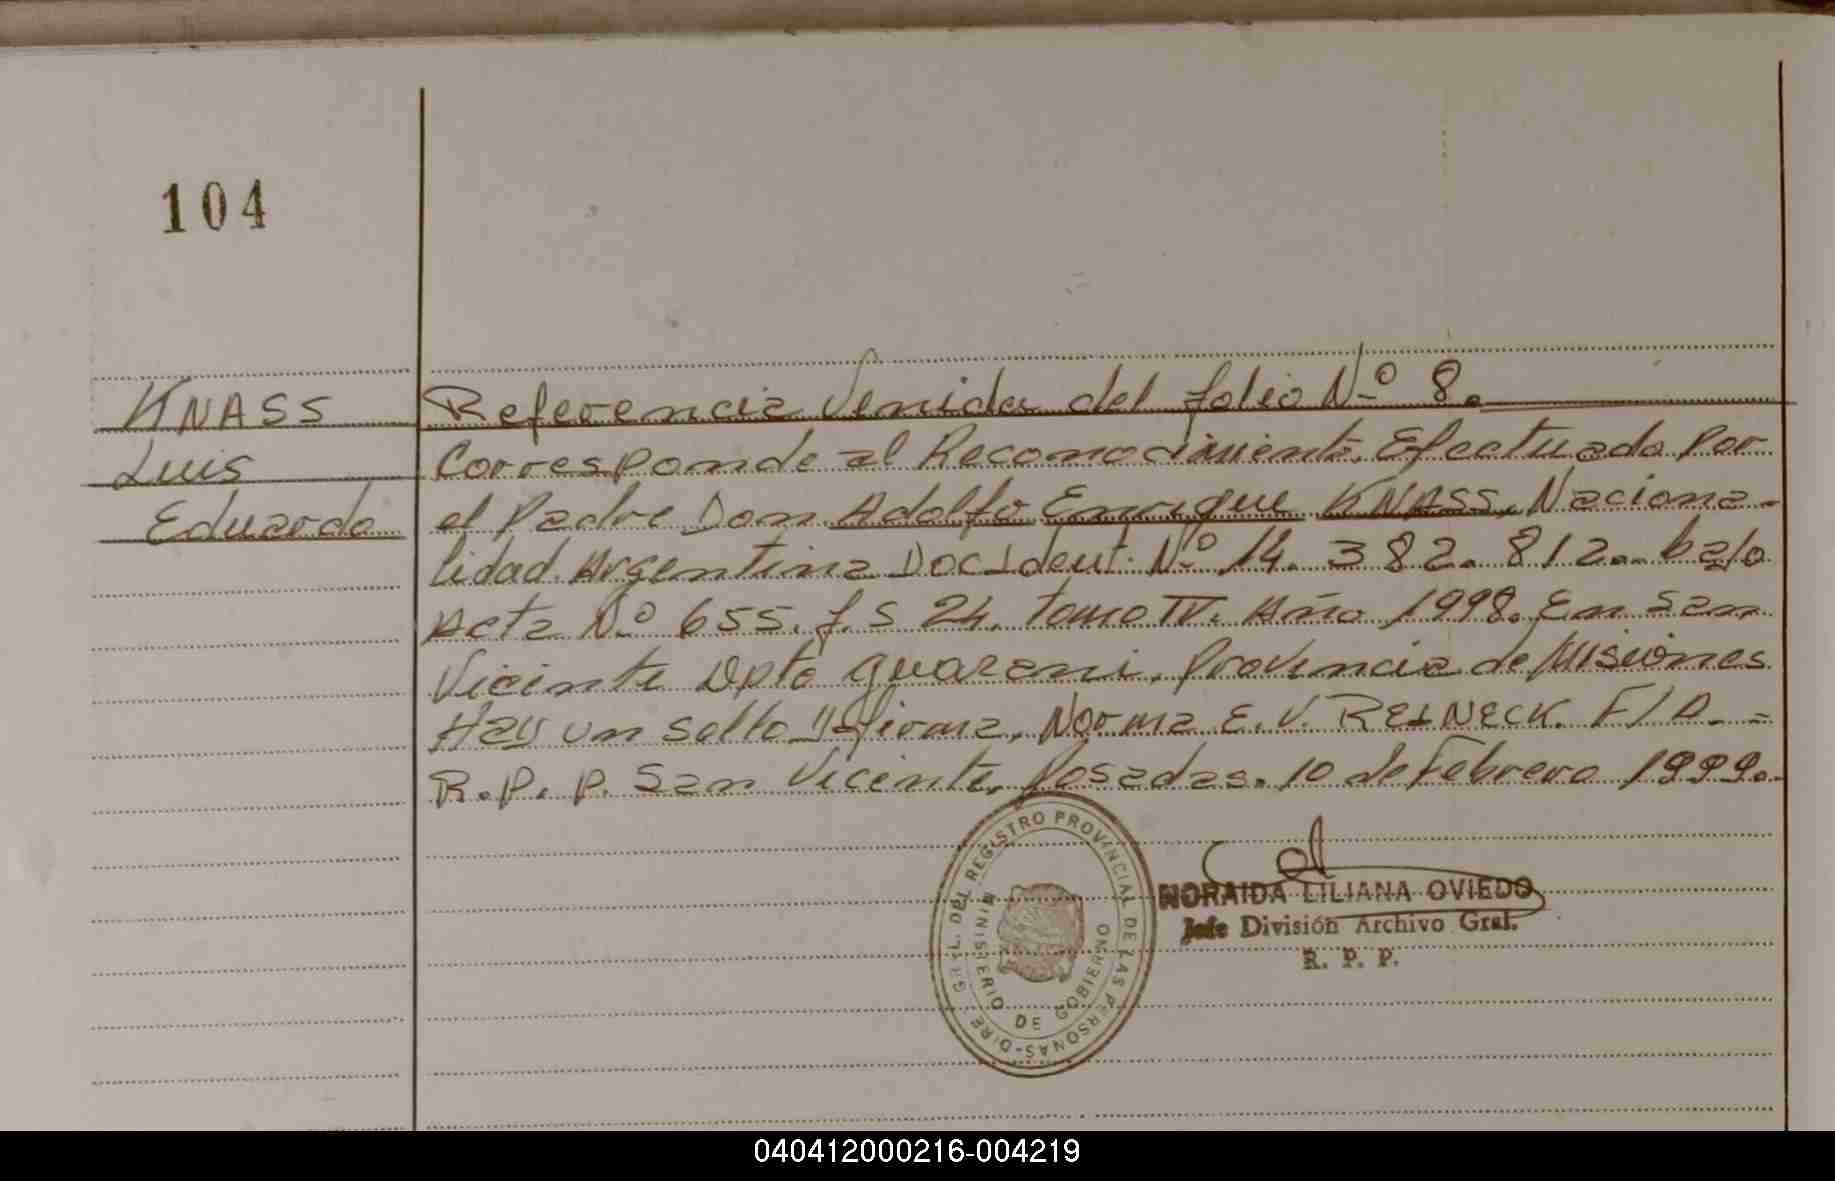 104
KNASS
Luis
Eduardo
Referencia Venida del folio Nº 8.
Corresponde al Reconocimiento, Efectuado Por
el Padre Don Adolfo Enrique KNASS, Naciona-
lidad Argentina Doc Ident. Nº 14.382.812.. bajo
Acta Nº 655. f. s 24. tomo IV. Año 1998. En San
Vicente Dpto Guarani. Provincia de Misiones
Hay un sello y firma, Norma E. V. REINECK. F/A. =
R. P. P. San Vicente, Posadas. 10 de Febrero 1999.
GRAL. DEL REGISTRO PROVINCIAL DE LAS PERSONAS-DIRE
MINISTERIO DE GOBIERNO
NORAIDA LILIANA OVIEDO
Jefe División Archivo Gral.
R. P. P.
040412000216-004219